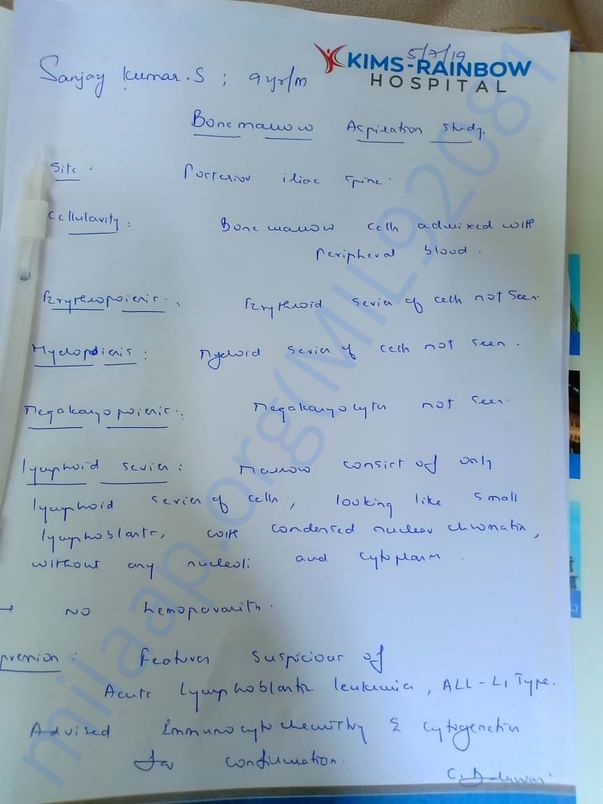 5/7/19
KIMS-RAINBOW
HOSPITAL
Sanjay Kumar.S ; 9yr/m
Bonemarrow Aspiration study.
Site : Posterior iliac spine.
Cellularity : Bone marrow cells admixed with
peripheral blood.
Erythropoiesis : Erythroid series of cells not seen.
Myelopoiesis : Myeloid series of cells not seen.
Megakaryopoiesis : Megakaryocytes not seen.
Lymphoid series : Marrow consist of only
lymphoid series of cells, looking like small
lymphoblasts, with condensed nuclear chromatin,
without any nucleoli and cytoplasm.
→ No hemoparasites.
pression : Features suspicious of
Acute lymphoblastic leukemia, ALL-L1 Type.
Advised Immunocytochemistry & cytogenetics
for confirmation.
milaap.org(MIL920811)